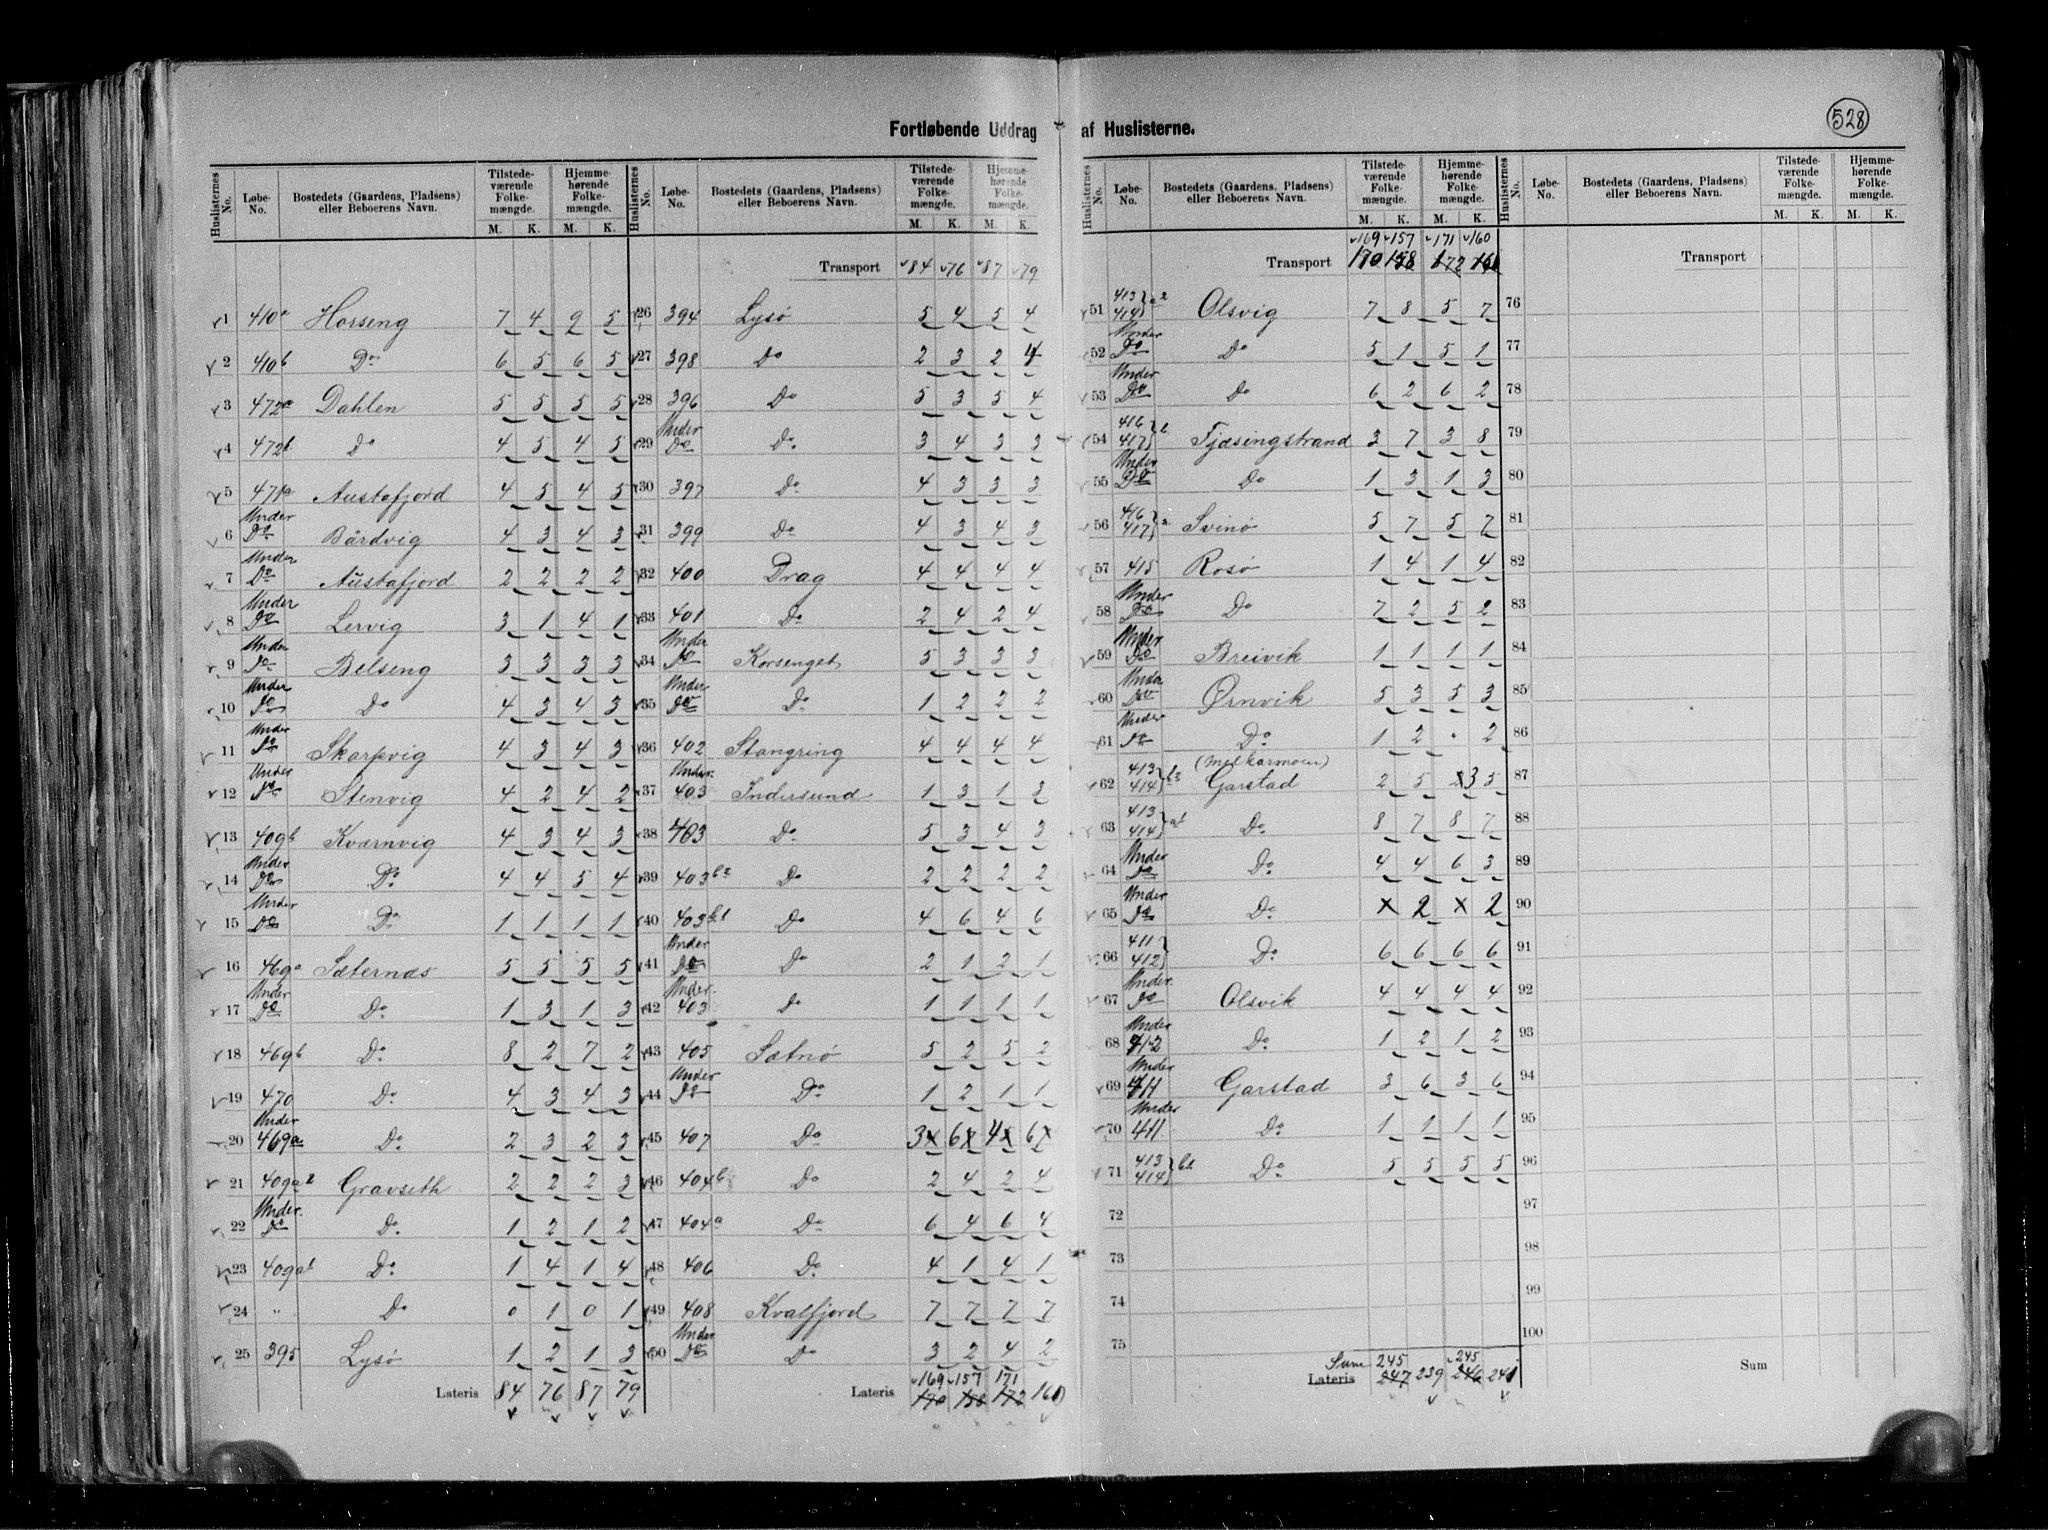 528
Fortløbende Uddrag af Huslisterne.
Huslisternes No. Løbe-No. Bostedets (Gaardens, Pladsens) eller Beboerens Navn. Tilstede-værende Folke-mængde. M. K. Hjemme-hørende Folke-mængde. M. K.
1 410a Horseng 7 4 9 5
2 410b Do 6 5 6 5
3 472a Dahlen 5 5 5 5
4 472b Do 4 5 4 5
5 471a Austafjord 4 5 4 5
6 Under Do Bårdvig 4 3 4 3
7 Under Do Austafjord 2 2 2 2
8 Under Do Lervig 3 1 4 1
9 Under Do Belseng 3 3 3 3
10 Under Do Do 4 3 4 3
11 Under Do Skarpvig 4 3 4 3
12 Under Do Stenvig 4 2 4 2
13 409b Kvarnvig 4 3 4 3
14 Under Do Do 4 4 5 4
15 Under Do Do 1 1 1 1
16 469a Sæternæs 5 5 5 5
17 Under Do Do 1 3 1 3
18 469b Do 8 2 7 2
19 470 Do 4 3 4 3
20 Under 469a Do 2 3 2 3
21 409a2 Gravseth 2 2 2 3
22 Under Do Do 1 2 1 2
23 409a1 Do 1 4 1 4
24 " Do 0 1 0 1
25 395 Lysø 1 2 1 3
Lateris 84 76 87 79
Huslisternes No. Løbe-No. Bostedets (Gaardens, Pladsens) eller Beboerens Navn. Tilstede-værende Folke-mængde. M. K. Hjemme-hørende Folke-mængde. M. K.
Transport 84 76 87 79
26 394 Lysø 5 4 5 4
27 398 Do 2 3 2 4
28 396 Do 5 3 5 4
29 Under Do Do 3 4 3 3
30 397 Do 4 3 3 3
31 399 Do 4 3 4 3
32 400 Drag 4 4 4 4
33 401 Do 2 4 2 4
34 Under Do Korsenget 5 3 3 3
35 Under Do Do 1 2 2 2
36 402 Stangring 4 4 4 4
37 Under 403 Indersund 1 3 1 3
38 403 Do 5 3 4 3
39 403b2 Do 2 2 2 2
40 403b1 Do 4 6 4 6
41 Under Do Do 2 1 2 1
42 Under 403 Do 1 1 1 1
43 405 Sætnø 5 2 5 2
44 Under Do Do 1 2 1 1
45 407 Do 3x 6x 4x 6x
46 404b Do 2 4 2 4
47 404a Do 6 4 6 4
48 406 Do 4 1 4 1
49 408 Kvalfjord 7 7 7 7
50 Under Do Do 3 2 4 2
169 157 171
Lateris 170 158 172 160
Huslisternes No. Løbe-No. Bostedets (Gaardens, Pladsens) eller Beboerens Navn. Tilstede-værende Folke-mængde. M. K. Hjemme-hørende Folke-mængde. M. K.
169 157 171 160
Transport 170 158 172 161
51 413 414 a2 Olsvig 7 8 5 7
52 Under Do Do 5 1 5 1
53 Under Do Do 6 2 6 2
54 416 417 b Tjæsingstrand 3 7 3 8
55 Under Do Do 1 3 1 3
56 416 417 a Svinø 5 7 5 7
57 415 Rosø 1 4 1 4
58 Under Do Do 7 2 5 2
59 Under Do Breivik 1 1 1 1
60 Under Do Ørnvik 5 3 5 3
61 Under Do Do 1 2 • 2
62 413 414 b2 (Melkarmoen) Garstad 2 5 3 5
63 413 414 a1 Do 8 7 8 7
64 Under Do Do 4 4 6 3
65 Under Do Do x 2 x 2
66 411 412 Do 6 6 6 6
67 Under Do Olsvik 4 4 4 4
68 Under 412 Do 1 2 1 2
69 Under 411 Garstad 3 6 3 6
70 Under 411 Do 1 1 1 1
71 413 414 b1 Do 5 5 5 5
72
73
74
75
Sum 245 245
Lateris 247 239 246 241
Huslisternes No. Løbe-No. Bostedets (Gaardens, Pladsens) eller Beboerens Navn. Tilstede-værende Folke-mængde. M. K. Hjemme-hørende Folke-mængde. M. K.
Transport
76
77
78
79
80
81
82
83
84
85
86
87
88
89
90
91
92
93
94
95
96
97
98
99
100
Sum